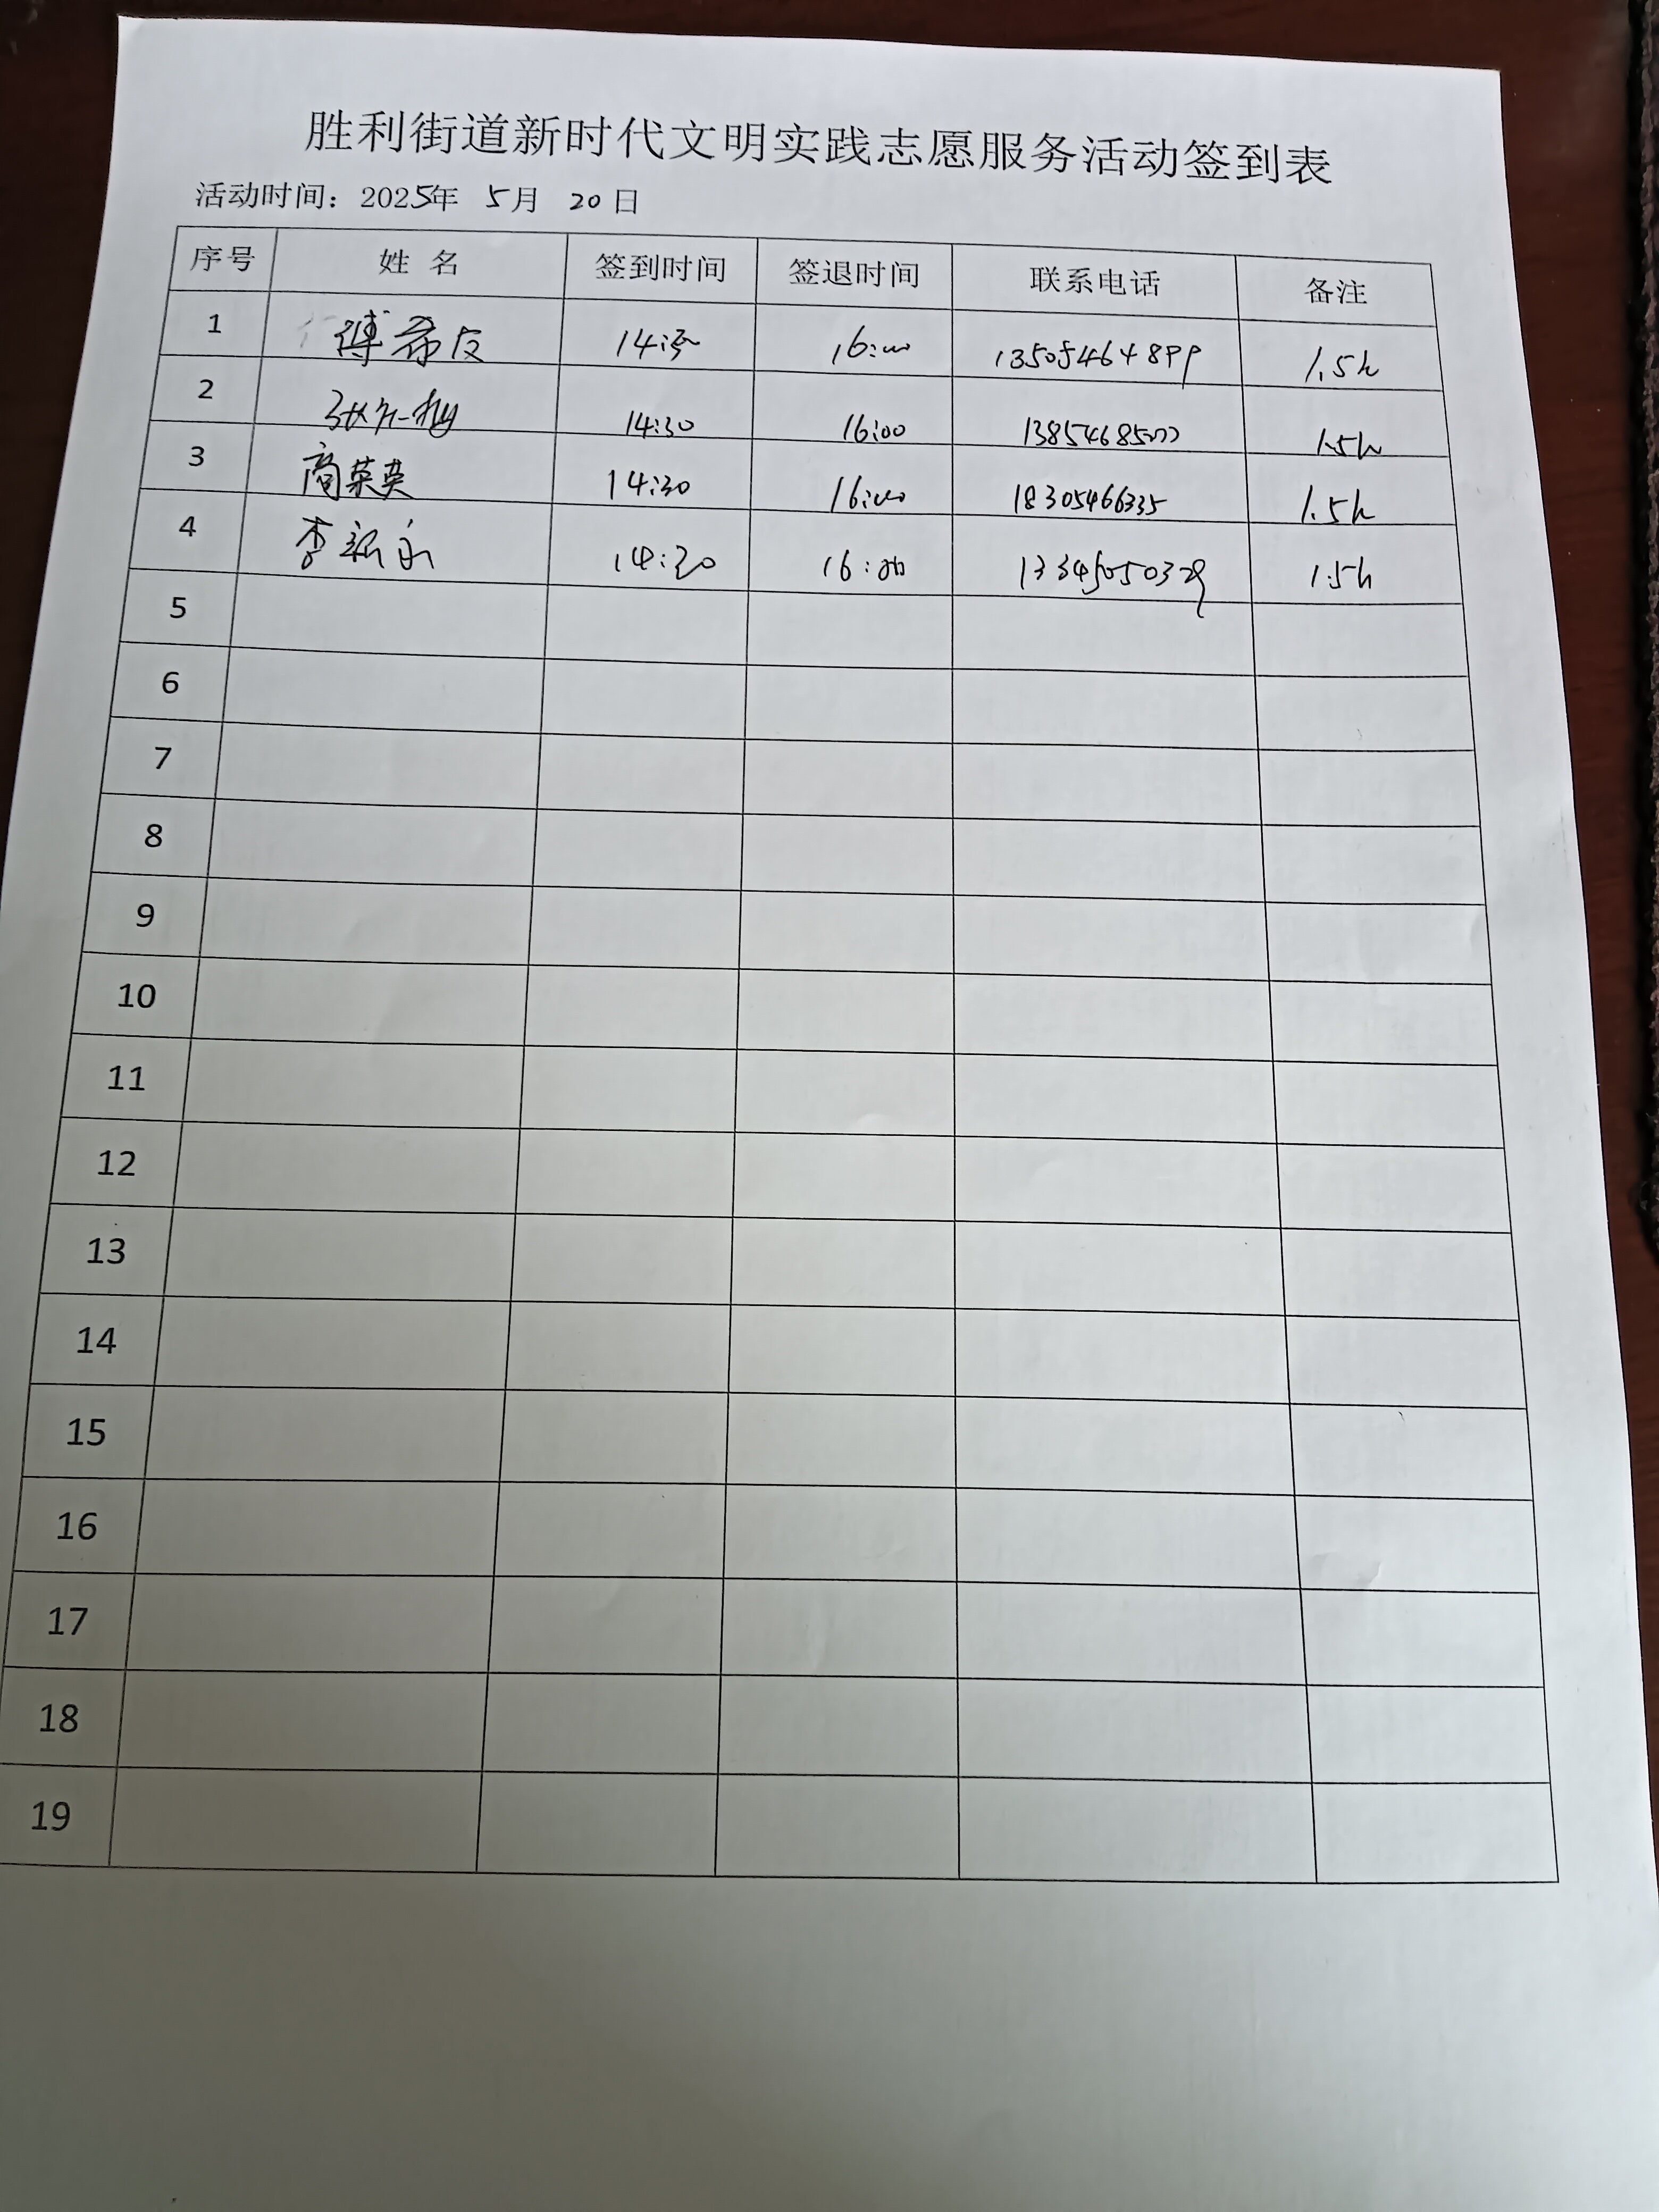 胜利街道新时代文明实践志愿服务活动签到表
活动时间：2025年 5月 20日
序号 姓 名 签到时间 签退时间 联系电话 备注
1 傅希友 14:30 16:00 13505464899 1.5h
2 14:30 16:00 1.5h
3 商荣英 14:30 16:00 18305466335 1.5h
4 李新 14:30 16:00 1.5h
5
6
7
8
9
10
11
12
13
14
15
16
17
18
19